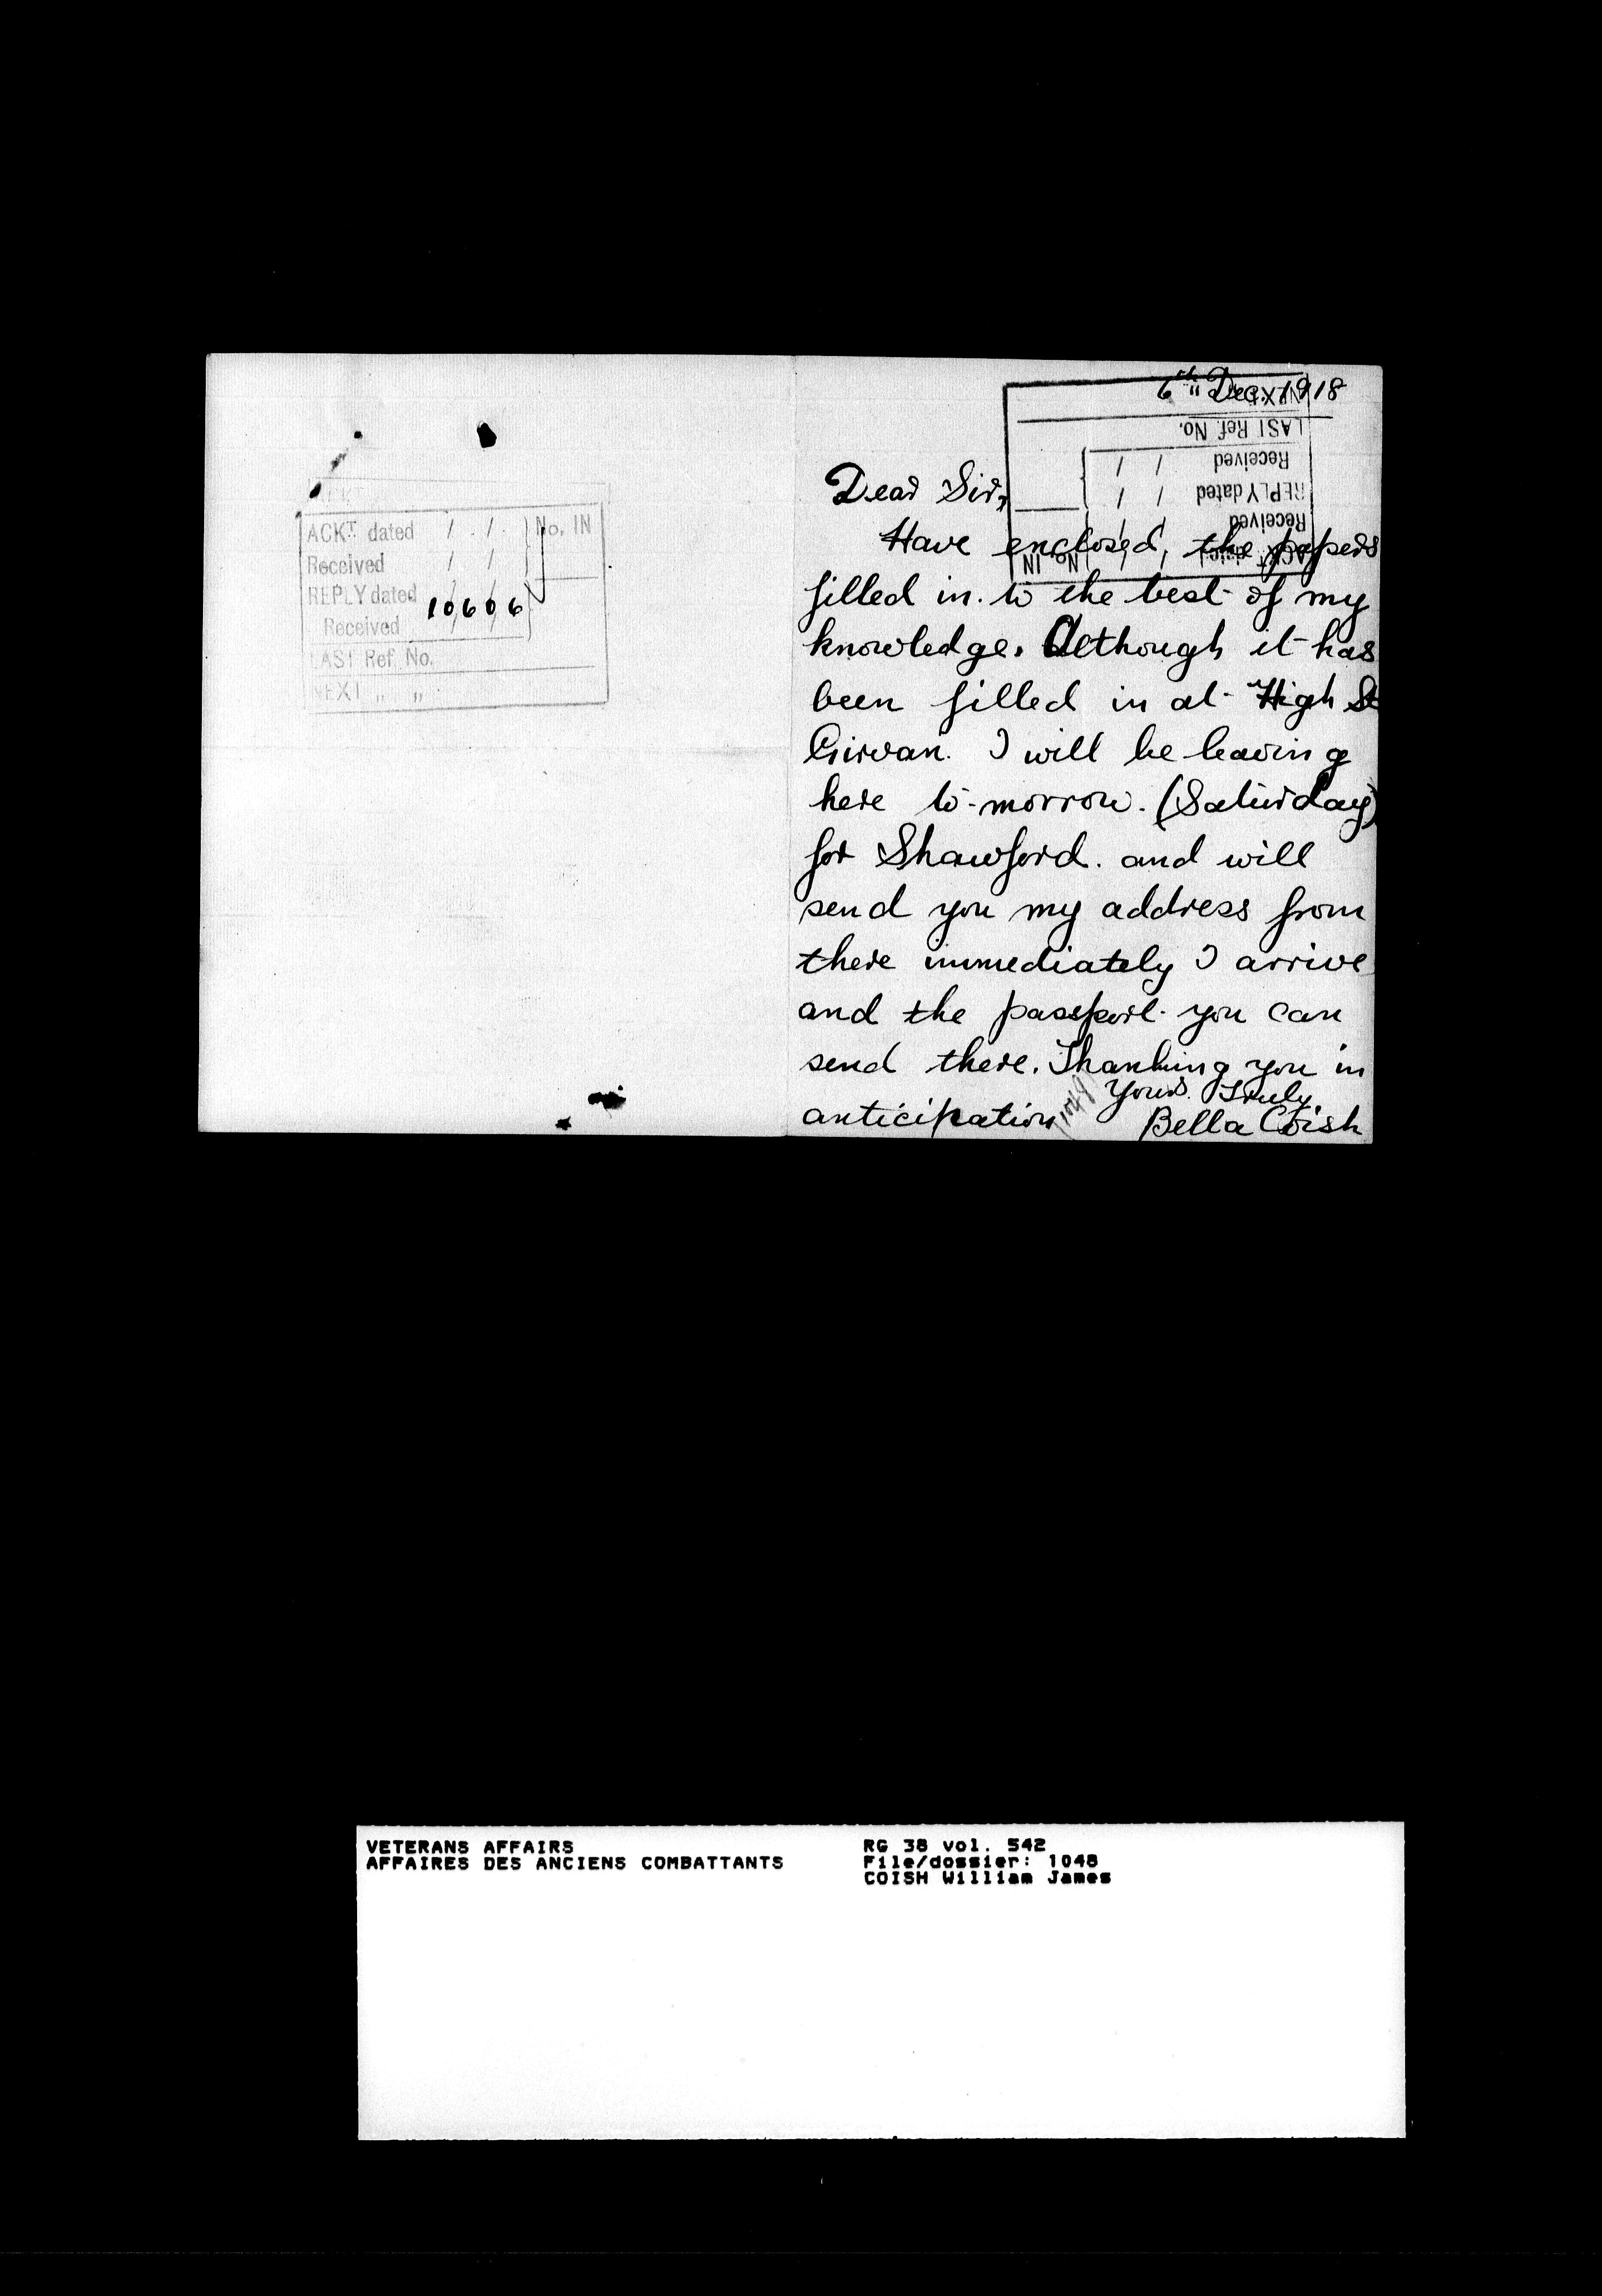 ACKT. dated / / No. IN
Received / /
REPLY dated
10606
Received
LAST Ref. No.
NEXT " "
6th Dec. 1918
NEXT
LAST Ref. No.
Received / /
REPLY dated / /
Received
ACKT. dated / / No. IN
Dear Sir,
Have enclosed, the papers
filled in. to the best of my
knowledge. Although it has
been filled in at High St
Girvan. I will be leaving
here to-morrow. (Saturday)
for Shawford. and will
send you my address from
there immediately I arrive
and the passport you can
send there. Thanking you in
anticipation
Yours Truly,
Bella Coish
1048
VETERANS AFFAIRS
AFFAIRES DES ANCIENS COMBATTANTS
RG 38 vol. 542
File/dossier: 1048
COISH William James